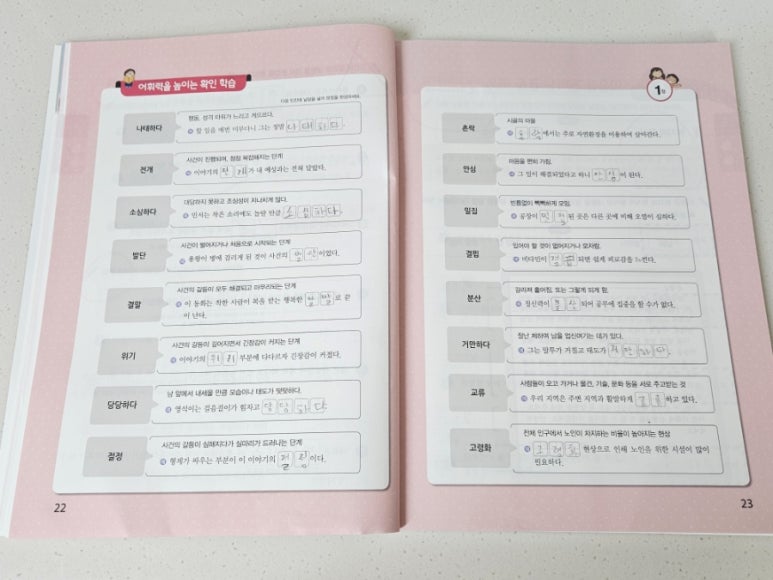 어휘력을 높이는 확인 학습
다음 빈칸에 낱말을 넣어 문장을 완성하세요.
나태하다
행동, 성격 따위가 느리고 게으르다.
할 일을 매번 미루다니 그는 정말 나태하다.
전개
사건이 진행되며, 점점 복잡해지는 단계
이야기의 전개가 내 예상과는 전혀 달랐다.
소심하다
대담하지 못하고 조심성이 지나치게 많다.
민서는 작은 소리에도 놀랄 만큼 소심하다.
발단
사건이 벌어지거나 처음으로 시작되는 단계
용왕이 병에 걸리게 된 것이 사건의 발단이었다.
결말
사건의 갈등이 모두 해결되고 마무리되는 단계
이 동화는 착한 사람이 복을 받는 행복한 결말로 끝
이 난다.
위기
사건의 갈등이 깊어지면서 긴장감이 커지는 단계
이야기의 위기 부분에 다다르자 긴장감이 커졌다.
당당하다
남 앞에서 내세울 만큼 모습이나 태도가 떳떳하다.
영석이는 걸음걸이가 힘차고 당당하다
절정
사건의 갈등이 심해지다가 실마리가 드러나는 단계
형제가 싸우는 부분이 이 이야기의 절정이다.
22
1장
촌락
시골의 마을
촌락에서는 주로 자연환경을 이용하여 살아간다.
안심
마음을 편히 가짐.
그 일이 해결되었다고 하니 안심이 된다.
밀집
빈틈없이 빽빽하게 모임.
공장이 밀집된 곳은 다른 곳에 비해 오염이 심하다.
결핍
있어야 할 것이 없어지거나 모자람.
비타민이 결핍되면 쉽게 피로감을 느낀다.
분산
갈라져 흩어짐. 또는 그렇게 되게 함.
정신력이 분산되어 공부에 집중을 할 수가 없다.
거만하다
잘난 체하며 남을 업신여기는 데가 있다.
그는 말투가 거칠고 태도가 거만하다.
교류
사람들이 오고 가거나 물건, 기술, 문화 등을 서로 주고받는 것
우리 지역은 주변 지역과 활발하게 교류하고 있다.
고령화
전체 인구에서 노인이 차지하는 비율이 높아지는 현상
고령화 현상으로 인해 노인을 위한 시설이 많이
필요하다.
23